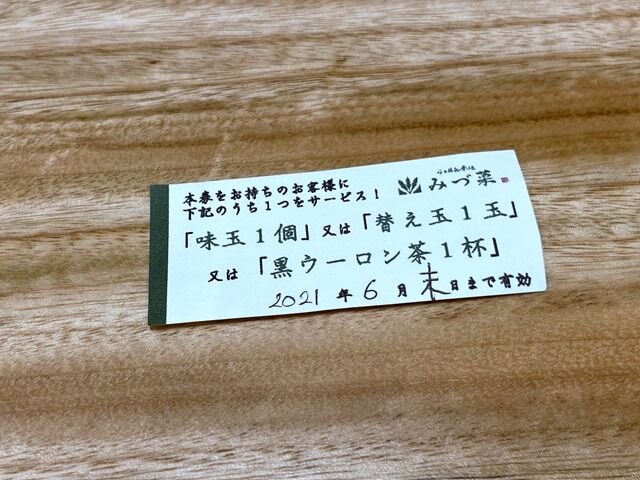 本券をお持ちのお客様に
下記のうち1つをサービス!
みづ菜
「味玉1個」又は「替え玉1玉」
又は「黒ウーロン茶1杯」
2021年6月末日まで有効